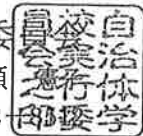 自治体学
校実行委
員会之印